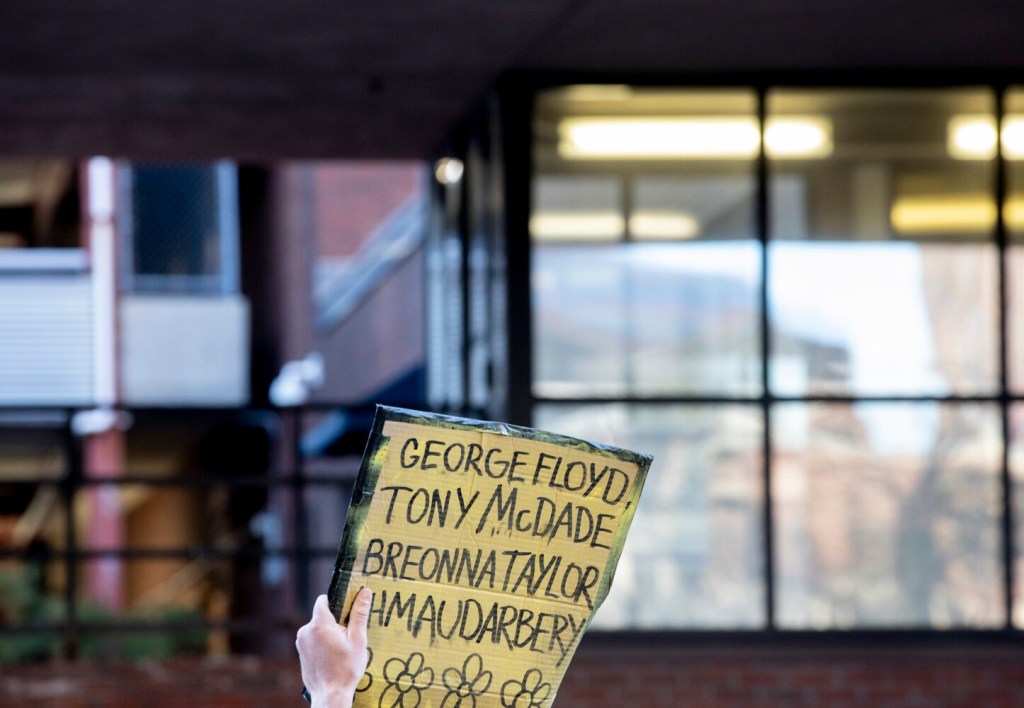 GEORGE FLOYD,
TONY McDADE
BREONNA TAYLOR
AHMAUD ARBERY